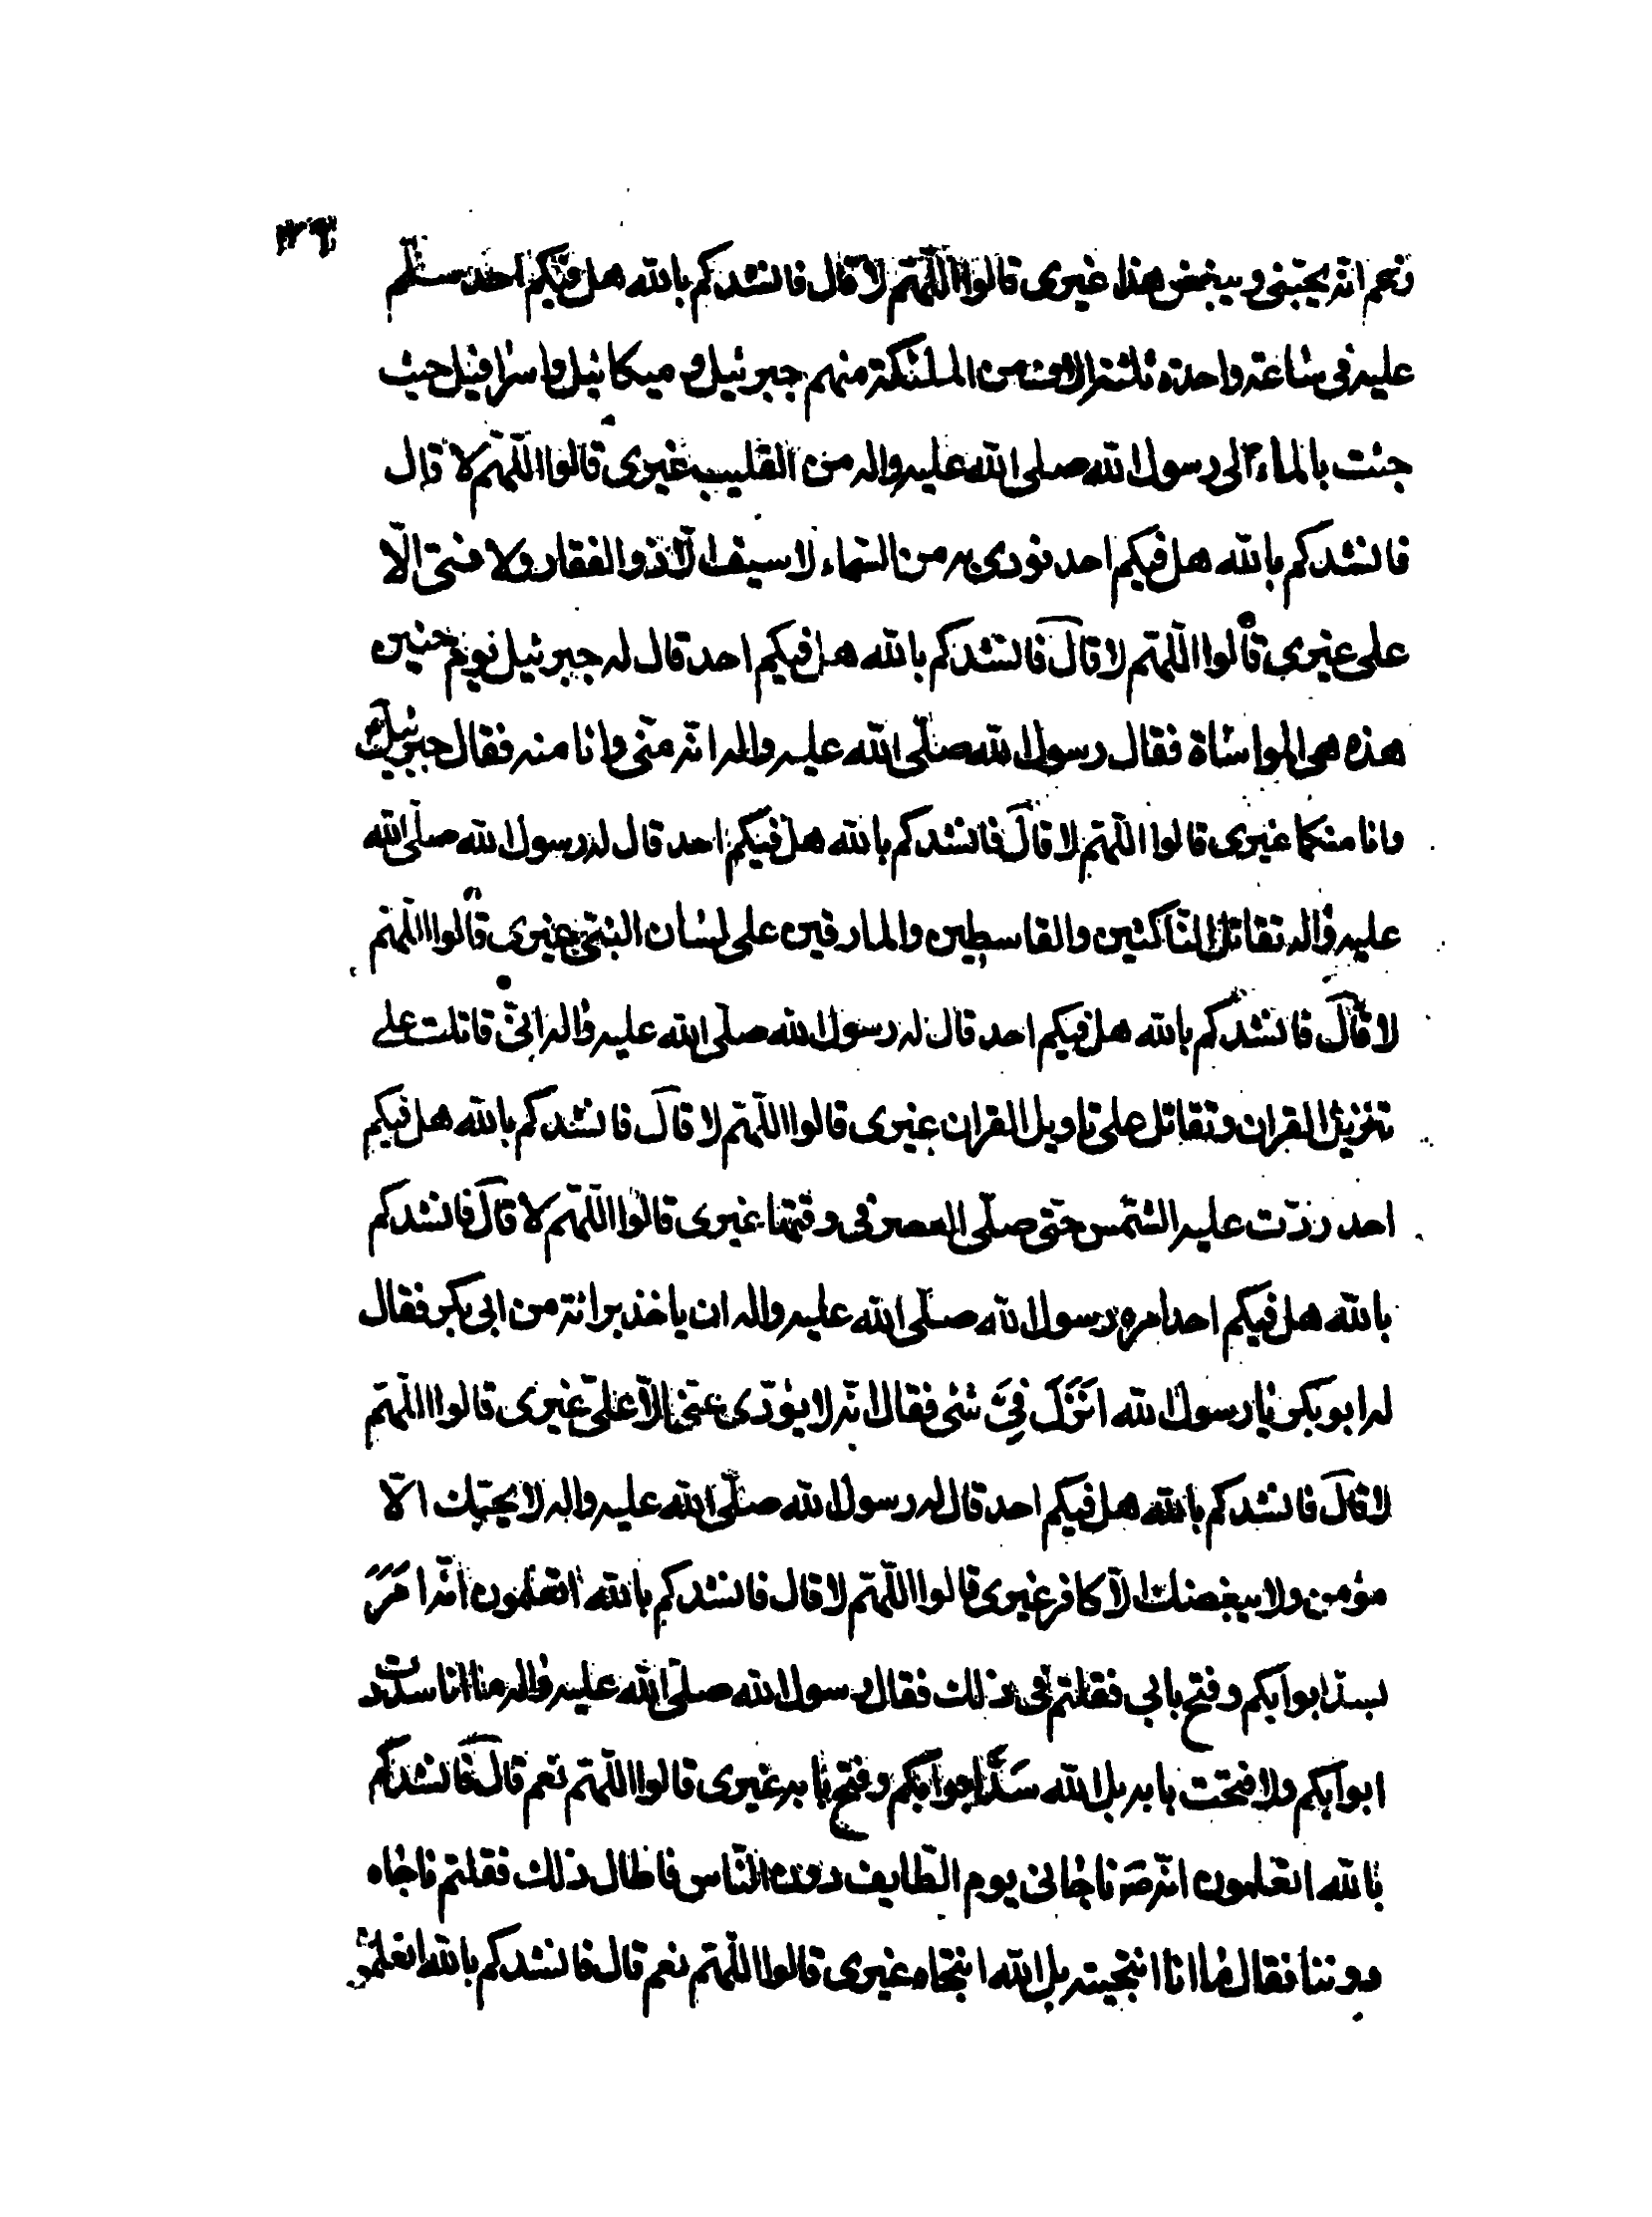 ٣٦
زعم انّه يحبّنى و يبغض هذا غيرى قالوا اللّهمّ لا قال فانشدكم بالله هل فيكم احد سلّم
عليه فى ساعة واحدة ثلثة الاف من الملئكة منهم جبرئيل و ميكائيل و اسرافيل حيث
جئت بالماء الى رسول الله صلى الله عليه واله من القليب غيرى قالوا اللّهمّ لا قال
فانشدكم بالله هل فيكم احد نودى به من السّماء لا سيف الّا ذو الفقار ولا فتى الّا
على غيرى قالوا اللّهمّ لا قال فانشدكم بالله هل فيكم احد قال له جبرئيل يوم حنين
هذه هى المواساة فقال رسول الله صلّى الله عليه واله انّه منّى وانا منه فقال جبرئيل
وانا منكما غيرى قالوا اللّهمّ لا قال فانشدكم بالله هل فيكم احد قال له رسول الله صلّى الله
عليه واله تقاتل النّاكثين والقاسطين والمارقين على لسان النبّى غيرى قالوا اللّهمّ
لا قال فانشدكم بالله هل فيكم احد قال له رسول الله صلّى الله عليه واله انّى قاتلت على
تنزيل القران وتقاتل على تاويل القران غيرى قالوا اللّهمّ لا قال فانشدكم بالله هل فيكم
احد ردّت عليه الشّمس حتّى صلّى العصر فى وقتها غيرى قالوا اللّهمّ لا قال فانشدكم
بالله هل فيكم احد امره رسول الله صلّى الله عليه واله ان ياخذ برائة من ابى بكر فقال
له ابو بكر يا رسول الله اَنَزَلَ فِىَّ شئى فقال انّه لا يؤدّى عنّى الّا علىّ غيرى قالوا اللّهمّ
لا قال فانشدكم بالله هل فيكم احد قال له رسول الله صلّى الله عليه واله لا يحبّك الّا
مؤمن ولا يبغضك الّا كافر غيرى قالوا اللّهمّ لا قال فانشدكم بالله اتعلمون انّه اَمَرَ
بسدّ ابوابكم وفتح بابى فقلتم فى ذلك فقال رسول الله صلّى الله عليه واله ما انا سددت
ابوابكم ولا فتحت بابه بل الله سَدَّ ابوابكم وفتح بابه غيرى قالوا اللّهمّ نعم قال فانشدكم
بالله اتعلمون انّه ناجانى يوم الطّايف دون النّاس فاطال ذلك فقلتم ناجاه
دوننا فقال ما انا انتجيته بل الله انتجاه غيرى قالوا اللّهمّ نعم قال فانشدكم بالله اتعلمون